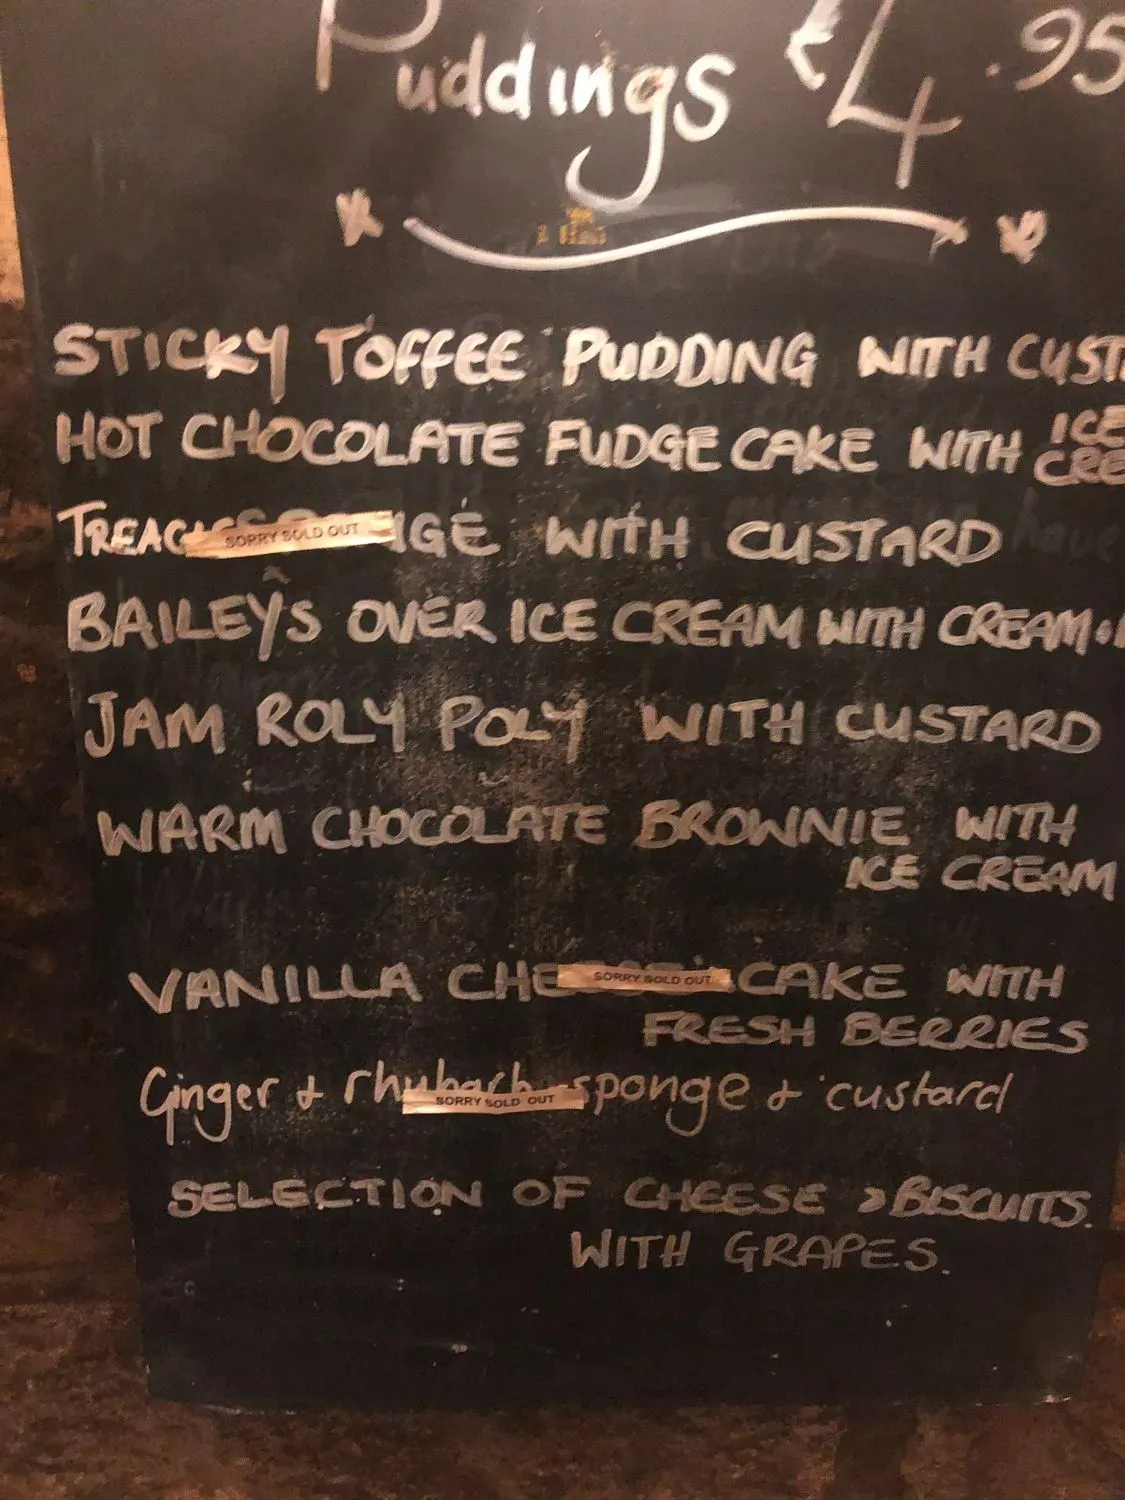 Puddings £4.95
STICKY TOFFEE PUDDING WITH
HOT CHOCOLATE FUDGE CAKE WITH ICE
SORRY SOLD OUT WITH CUSTARD
BAILEY'S OVER ICE CREAM WITH CREAM
JAM ROLY POLY WITH CUSTARD
WARM CHOCOLATE BROWNIE WITH
ICE CREAM
VANILLA SORRY SOLD OUT CAKE WITH
FRESH BERRIES
Ginger & rhubarb sponge & custard
SORRY SOLD OUT
SELECTION OF CHEESE & BISCUITS.
WITH GRAPES.